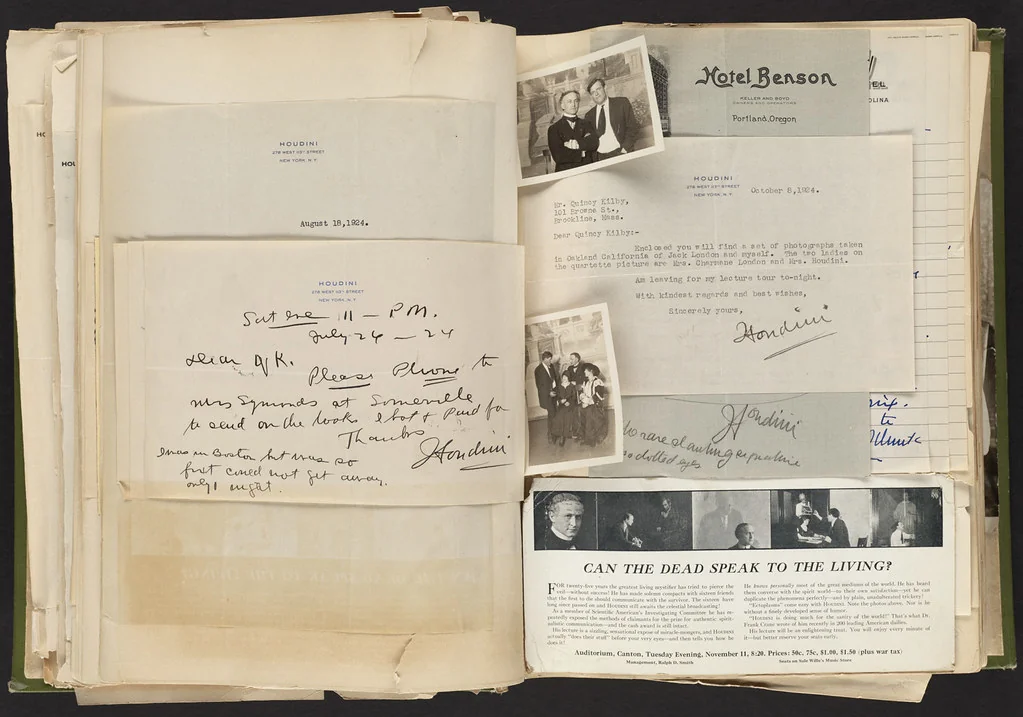 HOUDINI
278 WEST 113TH STREET
NEW YORK, N.Y.
August 18,1924.
HOUDINI
278 WEST 113TH STREET
NEW YORK, N.Y.
Sat eve 11 - P.M.
July 26 - 24
Dear Q K.
Please Phone to
Mrs Symonds at Somerville
to send on the books I bot & Paid for
Thanks
I was in Boston but was so
busy could not get away.
only 1 night.
Houdini
Hotel Benson
KELLER AND BOYD
OWNERS AND OPERATORS
Portland, Oregon
EL
OLINA
HOUDINI
278 WEST 113TH STREET
NEW YORK, N.Y.
October 8,1924.
Mr. Quincy Kilby,
101 Browne St.,
Brookline, Mass.
Dear Quincy Kilby:-
Enclosed you will find a set of photographs taken
in Oakland California of Jack London and myself. The two ladies on
the quartette picture are Mrs. Charmane London and Mrs. Houdini.
Am leaving for my lecture tour to-night.
With kindest regards and best wishes,
Sincerely yours,
Houdini
Houdini
rare slanting signature
no dotted eyes
to
CAN THE DEAD SPEAK TO THE LIVING?
FOR twenty-five years the greatest living mystifier has tried to pierce the
veil—without success! He has made solemn compacts with sixteen friends
that the first to die should communicate with the survivor. The sixteen have
long since passed on and HOUDINI still awaits the celestial broadcasting!
As a member of Scientific American's Investigating Committee he has re-
peatedly exposed the methods of claimants for the prize for authentic spirit-
ualistic communication—and the cash award is still intact.
His lecture is a sizzling, sensational expose of miracle-mongers, and HOUDINI
actually "does their stuff" before your very eyes—and then tells you how he
does it!
He knows personally most of the great mediums of the world. He has heard
them converse with the spirit world—to their own satisfaction—yet he can
duplicate the phenomena perfectly—and by plain, unadulterated trickery!
"Ectoplasms" come easy with HOUDINI. Note the photos above. Nor is he
without a finely developed sense of humor.
"HOUDINI is doing much for the sanity of the world!" That's what Dr.
Frank Crane wrote of him recently in 200 leading American dailies.
His lecture will be an enlightening treat. You will enjoy every minute of
it—but better reserve your seats early.
Auditorium, Canton, Tuesday Evening, November 11, 8:20. Prices: 50c, 75c, $1.00, $1.50 (plus war tax)
Management, Ralph D. Smith
Seats on Sale Wille's Music Store